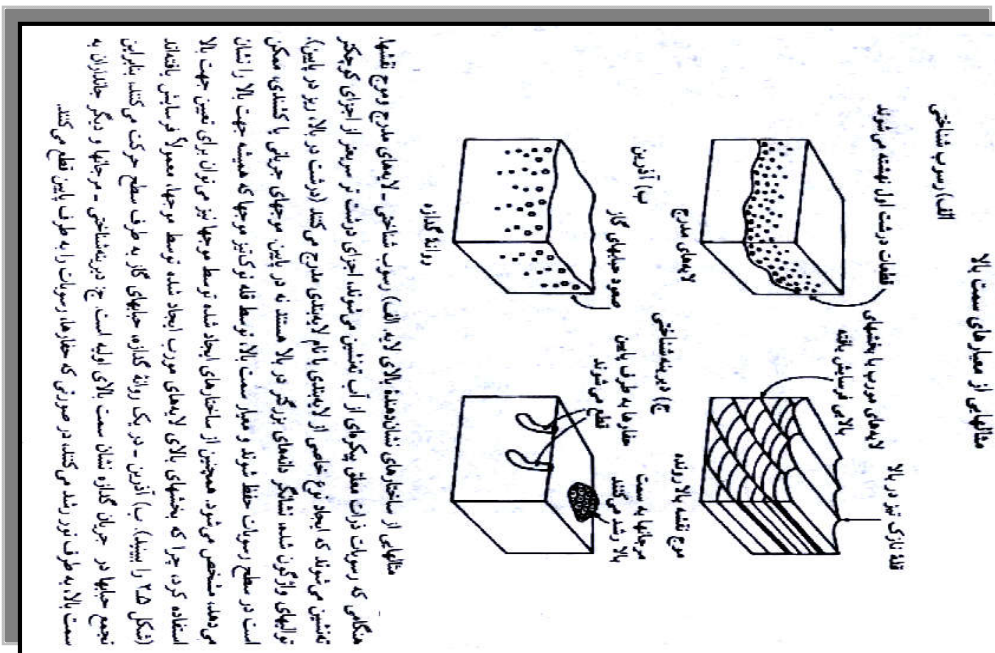 مثالهایی از معیارهای سمت بالا
الف) رسوب شناختی
قطعات درشت اول نهشته می شوند
لایه‌های مدرج
لایه‌های مورب با بخشهای
بالایی فرسایش یافته
قلهٔ نازک تیز در بالا
موج نقشه بالا رونده
ب) آذرین
صعود حبابهای گاز
روانهٔ گدازه
ج) دیرینه‌شناختی
حفارها به طرف پایین
قطع می‌شوند
مرجانها به سمت
بالا رشد می‌کنند
مثالهایی از ساختارهای نشان‌دهندهٔ بالای لایه. الف) رسوب شناختی ـ لایه‌های مدرج و موج نقشها.
هنگامی که رسوبات ذرات معلق پیکره‌ای از آب ته‌نشین می‌شوند، اجزای درشت تر سریعتر از اجزای کوچکتر
ته‌نشین می‌شوند که ایجاد نوع خاصی از لایه‌بندی با نام لایه‌بندی مدرج می‌کنند (درشت در بالا، ریز در پایین).
توالیهای واژگون شده، نشانگر دانه‌های بزرگتر در بالا هستند نه در پایین. موجهای جریانی یا کشندی، ممکن
است در سطح رسوبات حفظ شوند و معیار سمت بالا، توسط قله نوک‌تیز موجها که همیشه جهت بالا را نشان
می‌دهد، مشخص می‌شود. همچنین از ساختارهای ایجاد شده توسط موجها نیز می‌توان برای تعیین جهت بالا
استفاده کرد، چرا که بخشهای بالای لایه‌های مورب ایجاد شده توسط موجها، معمولاً فرسایش یافته‌اند
(شکل ۲.۵ را ببینید). ب) آذرین ـ در یک روانهٔ گدازه، حبابهای گاز به طرف سطح حرکت می‌کنند، بنابراین
تجمع حبابها در جریان گدازه نشان سمت بالای اولیه است. ج: دیرینه‌شناختی ـ مرجانها و دیگر جانداران به
سمت بالا، به طرف نور رشد می‌کنند، در صورتی که حفارها، رسوبات را به طرف پایین قطع می‌کنند.